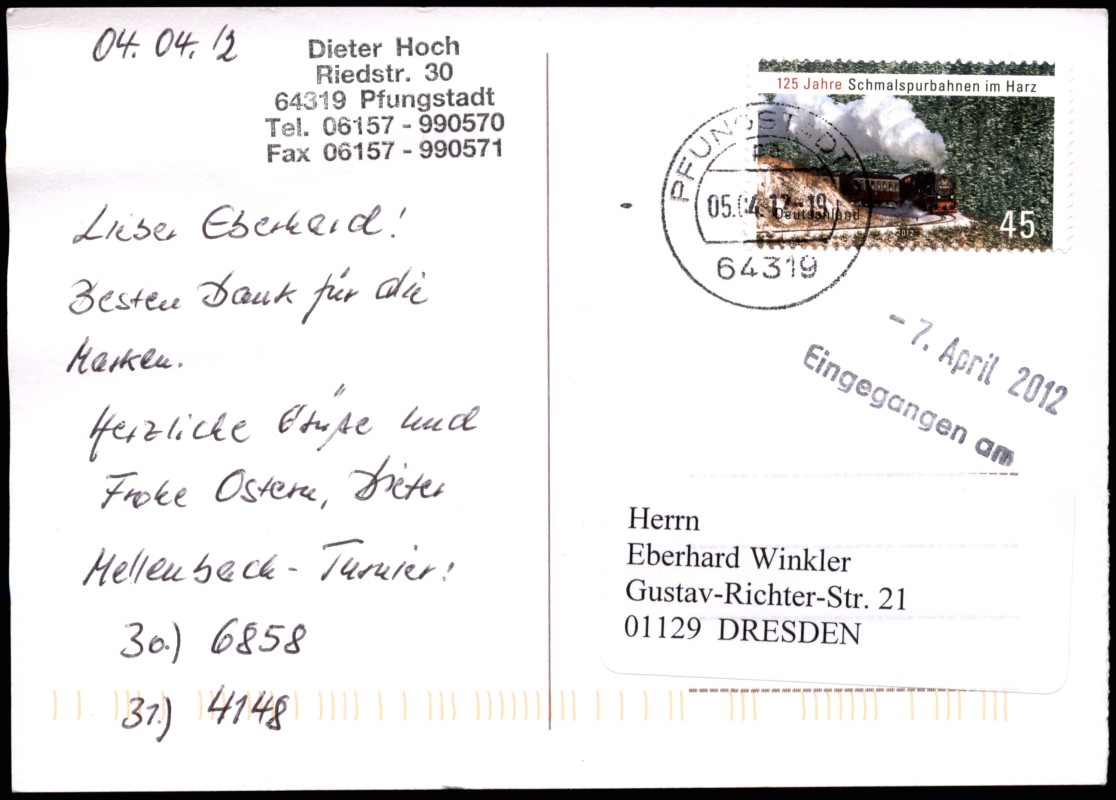 04. 04. 12
Dieter Hoch
Riedstr. 30
64319 Pfungstadt
Tel. 06157 - 990570
Fax 06157 - 990571
Lieber Eberhard!
Besten Dank für die
Marken.
Herzliche Grüße und
Frohe Ostern, Dieter
Mellenbach - Turnier:
30.) 6858
31.) 4148
125 Jahre Schmalspurbahnen im Harz
Deutschland
2012
45
PFUNGSTADT
05.04.12-19
64319
- 7. April 2012
Eingegangen am
Herrn
Eberhard Winkler
Gustav-Richter-Str. 21
01129 DRESDEN